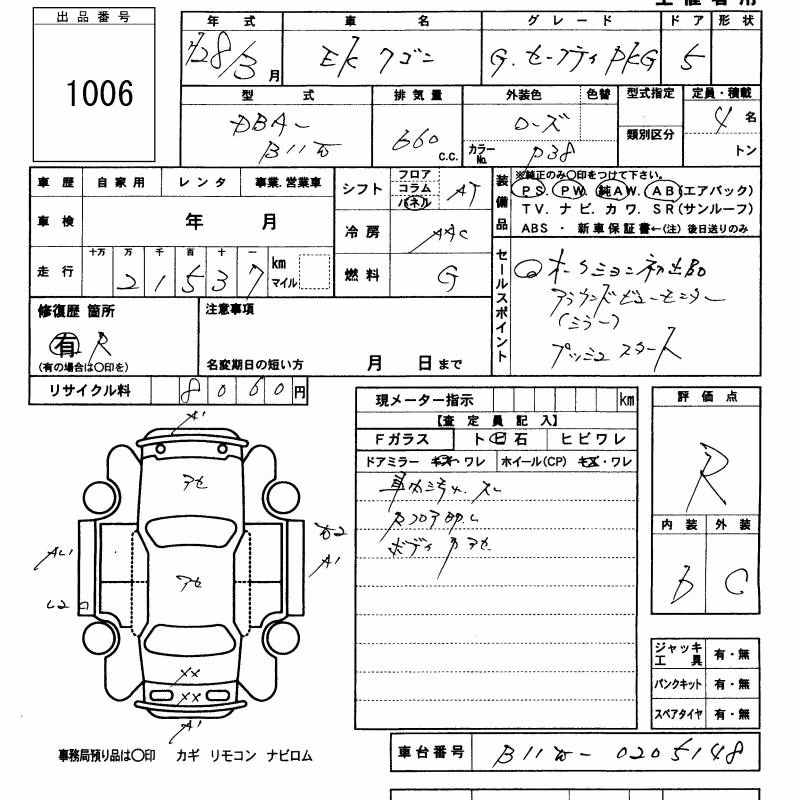 出品番号
1006
年式 車名 グレード ドア 形状
H28/3月 EKワゴン G.セーフティPKG 5
型式 排気量 外装色 色替 型式指定 定員・積載
DBA-B11W 660 c.c. ローズ カラーNo. P38 類別区分 4名 トン
車歴 自家用 レンタ 事業.営業車
シフト フロア コラム パネル AT
装備品 ※純正のみ〇印をつけて下さい。
PS. PW. 純AW. AB(エアバック)
TV. ナビ. カワ. SR(サンルーフ)
ABS ・ 新車保証書←(注) 後日送りのみ
車検 年 月
冷房 AAC
走行 十万 万 千 百 十 一 21537 km マイル
燃料 G
セールスポイント
オークション初出品
アラウンドビューモニター
(ミラー)
プッシュスタート
修復歴 箇所
有 R
(有の場合は〇印を)
注意事項
名変期日の短い方 月 日まで
リサイクル料 8060円
現メーター指示 km
【査定員記入】
Fガラス ト ビ 石 ヒビワレ
ドアミラー キズ・ワレ ホイール(CP) キズ・ワレ
車内汚れ.スレ
ボディ
評価点
R
内装 外装
B C
A1
アセ
A2
A1
アセ
XX
XX
A1
ジャッキ工具 有・無
パンクキット 有・無
スペアタイヤ 有・無
事務局預り品は〇印 カギ リモコン ナビロム
車台番号 B11W-0205148